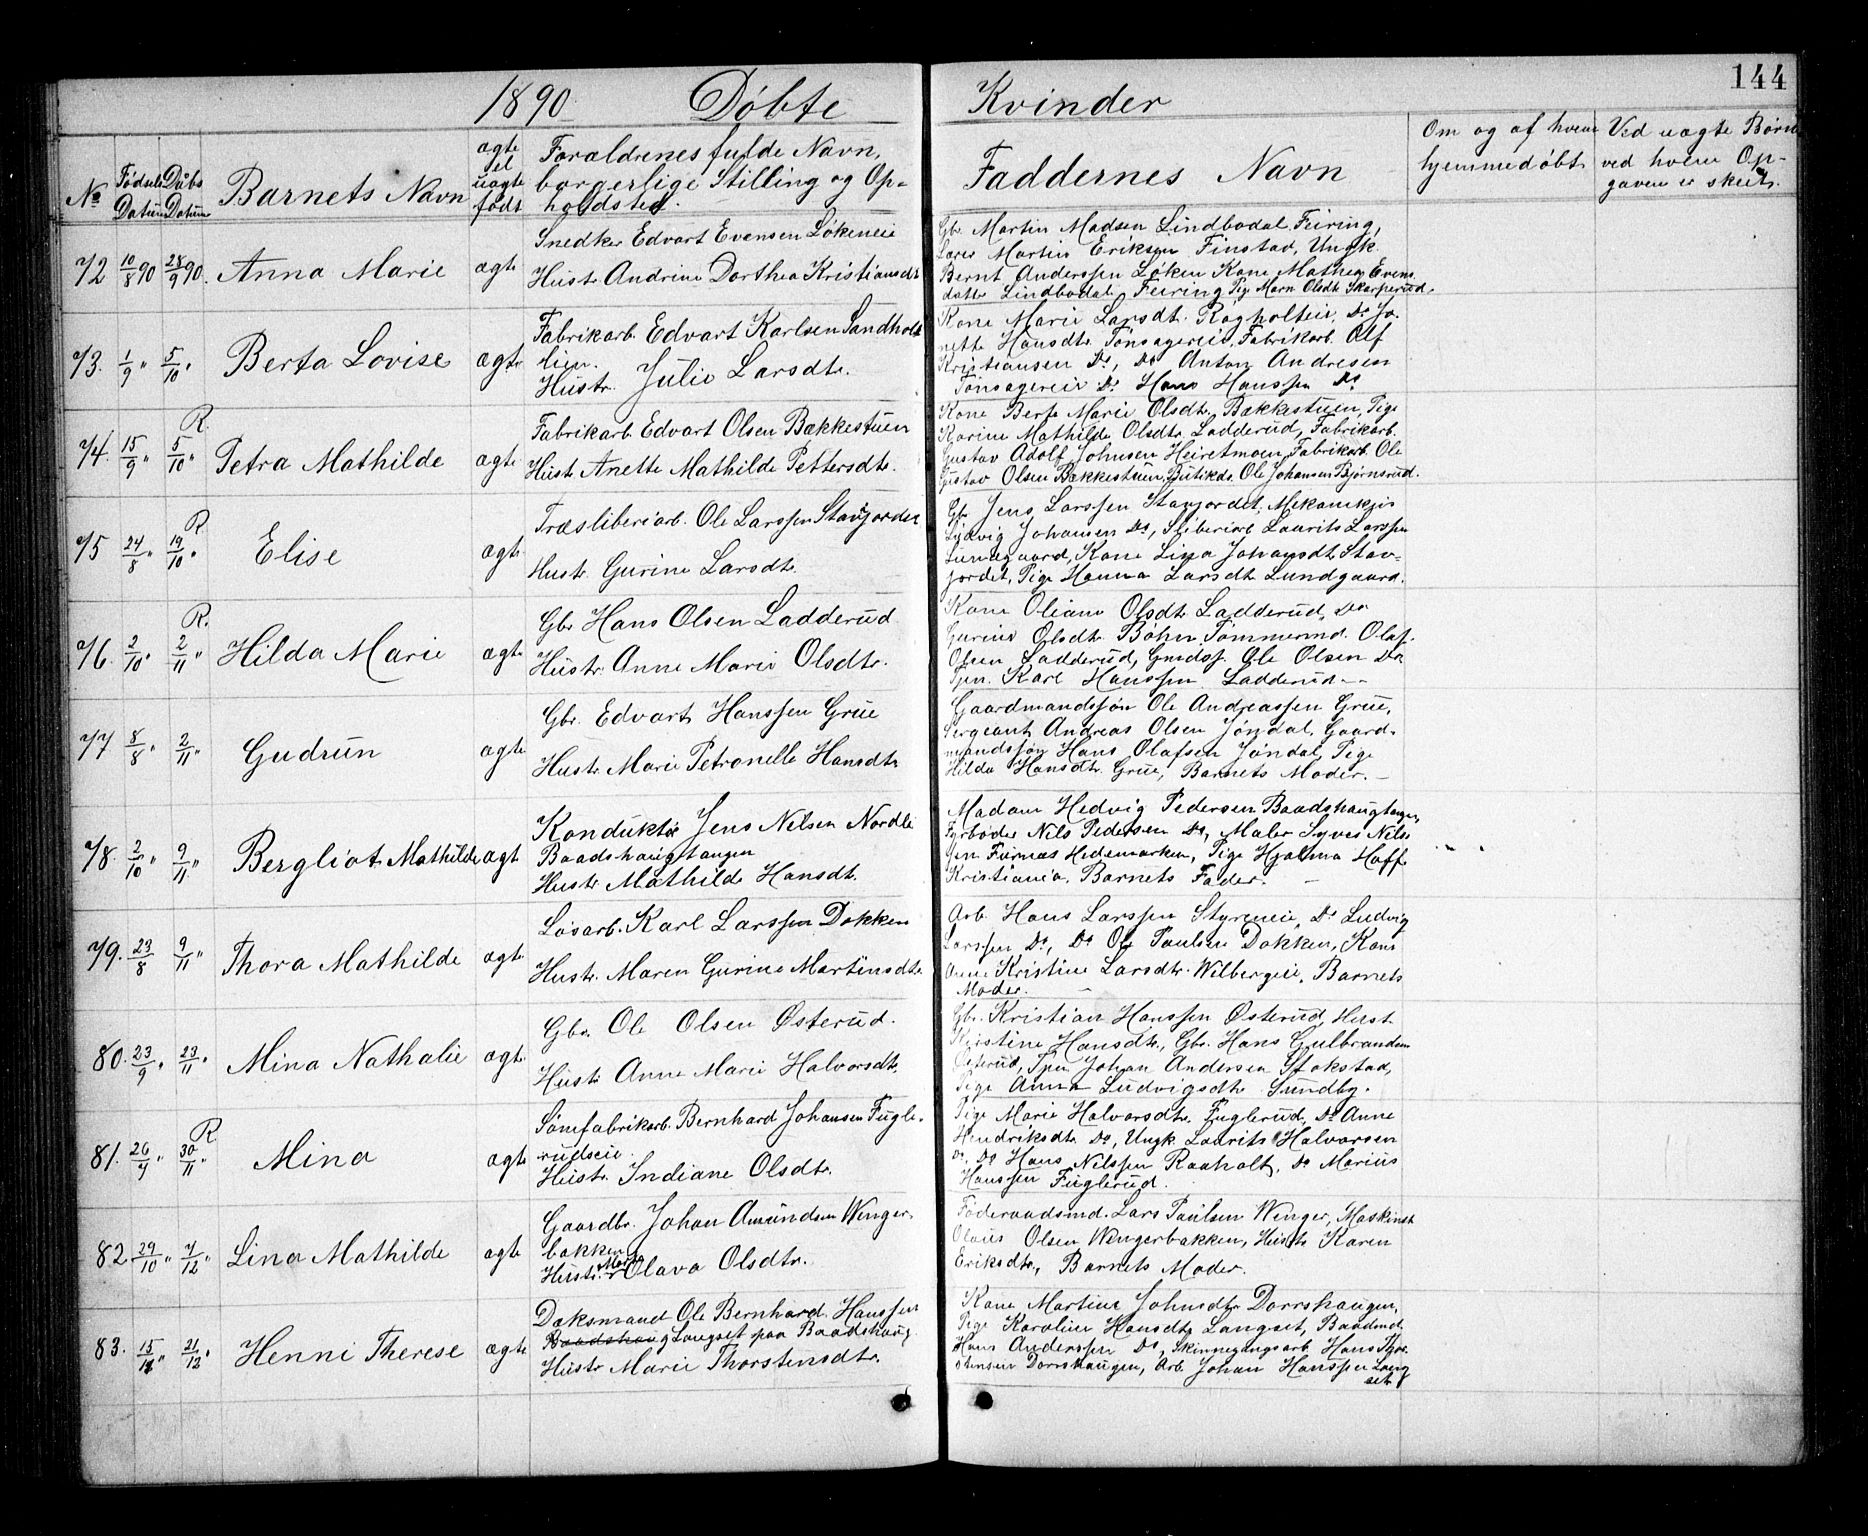 144
1890 Døbte Kvinder
No
Fødsels Datum
Daabs Datum
Barnets Navn
ægte el uægte født
Forældrenes fulde Navn,
borgerlige Stilling og Op-
holdsted.
Faddernes Navn
Om og af hvem
hjemmedøbt
Ved uægte Børn
ved hvem Op-
gaven er skeet.
72 10/8 90 28/9 90. Anna Marie ægte
Snedker Edvart Evensen Løkeneie
Hustr. Andrine Dorthea Kristiansdt
Gbr. Martin Madsen Lindbodal Feiring,
Martin Eriksen Finstad, Ungk.
Bernt Anderssen Løken Kone Mathea Evens
datter Lindbodal Feiring Pige Maren Olsdtr Skarperud.
73. 1/9 " 5/10 " Berta Lovise ægte
Fabrikarb. Edvart Karlsen Sandholt
eien.
Hustr. Julie Larsdtr.
Kone Marie Larsdt. Ragholteie, Do Jo-
nette Hansdtr. Tonsagereie, Fabrikarb. Olf
Kristiansen Do, Do Anton Andresen
Tonsagereie Do Hans Hanssen Do
74. 15/9 " R. 5/10 " Petra Mathilde ægte
Fabrikarb. Edvart Olsen Bækkestuen
Hustr. Anette Mathilde Pettersdtr.
Kone Berte Marie Olsdtr. Bækkestuen, Pige
Karine Mathilde Olsdtr. Ladderud, Fabrikarb.
Gustav Adolf Johnsen Heiretmoen, Fabrikarb. Ole
Gustav Olsen Bækkestuen, Butikds. Ole Johansen Bjørnsrud.
75 24/8 " R 19/10 " Elise ægte
Træsliberiarb. Ole Larssen Stavjordet
Hustr. Gurine Larsdtr.
Gbr. Jens Larssen Stavjordet, Mekanikjs
Ludvig Johansen Do, Sliberiarb Laurits Larssen
Lundgaard, Kone Lina Johansdt. Stav-
jordet, Pige Hanna Larsdtr Lundgaard.
76. 2/10 " R. 2/11 " Hilda Marie ægte
Gbr Hans Olsen Ladderud
Hustr. Anne Marie Olsdtr.
Kone Oliane Olsdtr Ladderud, Do
Gurine Olsdtr. Bøhn, Tømmermd. Olaf
Olsen Ladderud, Gmdss. Ole Olsen Do
Tjen. Karl Hanssen Ladderud --
77 8/8 " 2/11 " Gudrun ægte
Gbr. Edvart Hanssen Grue
Hustr. Marie Petronelle Hansdtr
Gaardmandssøn Ole Andreassen Grue,
Sergeant Andreas Olsen Jøndal, Gaard-
mandssøn Hans Olafsen Jøndal, Pige
Hilda Hansdtr. Grue, Barnets Moder. -
78. 2/10 " 9/11 " Bergliot Mathilde ægt
Konduktør Jens Nilsen Nordli
Baadshaugtangen
Hustr Mathilde Hansdt.
Madam Hedvig Pedersen Baadshaugtangen,
Fyrbøder Nils Pedersen Do, Maler Syver Nils-
sen Furnæs Hedemarken, Pige Hjalma Hoff
Kristiania, Barnets Fader. -
79. 23/8 9/11 " Thora Mathilde ægte
Løsarb. Karl Larssen Dokken
Hustr. Maren Gurine Martinsdtr.
Arb. Hans Larssen Styrieie, Do Ludvig
Larssen Do, Do Ole Paulsen Dokken, Kone
Anne Kristine Larsdtr. Wilbergeie, Barnets
Moder. -
80. 23/9 " 23/11 " Mina Nathalie ægte
Gbr. Ole Olsen Østerud.
Hustr Anne Marie Halvorsdtr.
Gbr. Kristian Hanssen Østerud, Hustr
Kirstine Hansdtr., Gbr. Hans Gulbrandsen
Østerud, Tjen Johan Andersen Stokstad,
Pige Anna Ludvigsdtr Sundby.
81. 26/7 " R 30/11 " Mina ægte
Sømfabrikarb. Bernhard Johansen Fugle-
rudseie.
Hustr. Indiane Olsdtr.
Pige Marie Halvorsdtr. Fuglerud, Do Anne
Hendriksdtr Do, Ungk Laurits Halvorsen
Do, Do Hans Nilssen Raaholt, Do Marius
Hanssen Fuglerud.
82 29/10 " 7/12 " Lina Mathilde ægte
Gaardbr. Johan Amundsen Wenger-
bakken
Hustr. Marte Olava Olsdtr.
Føderaadsmd. Lars Paulsen Wenger, Maskinst
Olaus Olsen Wengerbakken, Hustr Karen
Eriksdtr, Barnets Moder.
83. 15/11 " 21/12 " Henni Therese ægte
Daksmand Ole Bernhard Hanssen
Baadshaug Langset paa Baadshaug
Hustr Marie Thorstensdtr.
Kone Martine Johnsdtr Dorrshaugen,
Pige Karoline Hansdtr Langset, Baadmd.
Hans Anderssen Do, Skinnegangsarb. Hans Thor-
stensen Dorrshaugen, Arb. Johan Hanssen Lang
set